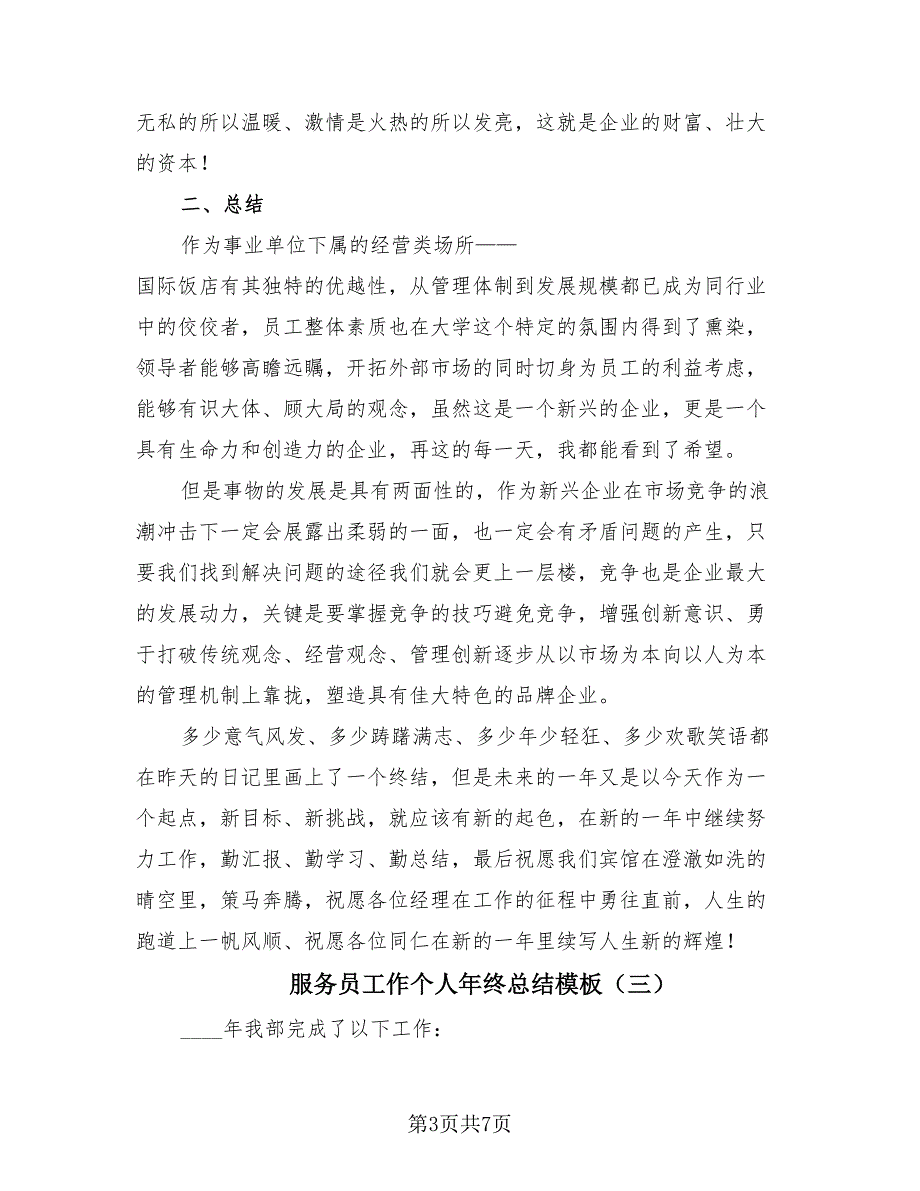 无私的所以温暖、激情是火热的所以发亮，这就是企业的财富、壮大
的资本！
二、总结
作为事业单位下属的经营类场所——
国际饭店有其独特的优越性，从管理体制到发展规模都已成为同行业
中的佼佼者，员工整体素质也在大学这个特定的氛围内得到了熏染，
领导者能够高瞻远瞩，开拓外部市场的同时切身为员工的利益考虑，
能够有识大体、顾大局的观念，虽然这是一个新兴的企业，更是一个
具有生命力和创造力的企业，再这的每一天，我都能看到了希望。
但是事物的发展是具有两面性的，作为新兴企业在市场竞争的浪
潮冲击下一定会展露出柔弱的一面，也一定会有矛盾问题的产生，只
要我们找到解决问题的途径我们就会更上一层楼，竞争也是企业最大
的发展动力，关键是要掌握竞争的技巧避免竞争，增强创新意识、勇
于打破传统观念、经营观念、管理创新逐步从以市场为本向以人为本
的管理机制上靠拢，塑造具有佳大特色的品牌企业。
多少意气风发、多少踌躇满志、多少年少轻狂、多少欢歌笑语都
在昨天的日记里画上了一个终结，但是未来的一年又是以今天作为一
个起点，新目标、新挑战，就应该有新的起色，在新的一年中继续努
力工作，勤汇报、勤学习、勤总结，最后祝愿我们宾馆在澄澈如洗的
晴空里，策马奔腾，祝愿各位经理在工作的征程中勇往直前，人生的
跑道上一帆风顺、祝愿各位同仁在新的一年里续写人生新的辉煌！
服务员工作个人年终总结模板（三）
____年我部完成了以下工作：
第3页共7页